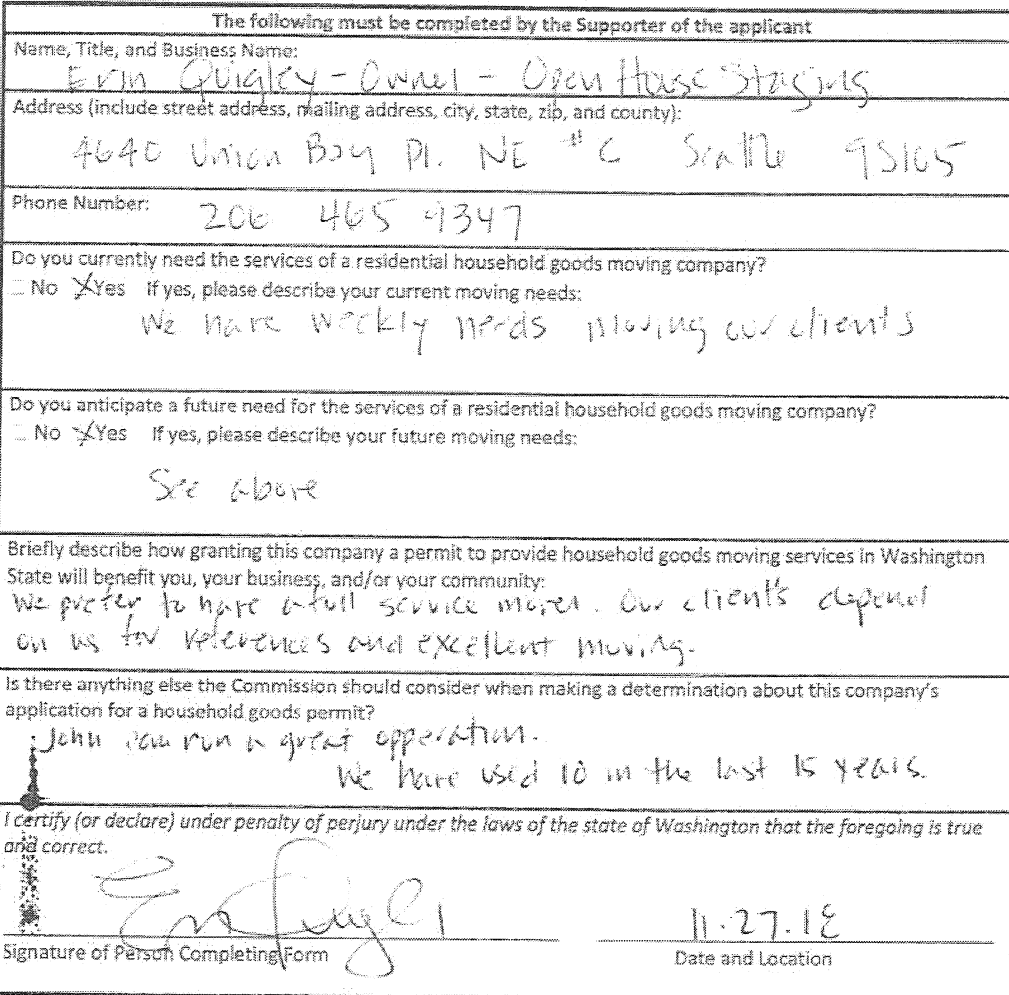 The following must be completed by the Supporter of the applicant
Name, Title, and Business Name:
Erin Quigley - Owner - Open House Staging
Address (include street address, mailing address, city, state, zip, and county):
4640 Union Bay Pl. NE # C Seattle 98105
Phone Number: 206 465 9347
Do you currently need the services of a residential household goods moving company?
No XYes If yes, please describe your current moving needs:
We have weekly needs moving our clients
Do you anticipate a future need for the services of a residential household goods moving company?
No XYes If yes, please describe your future moving needs:
See above
Briefly describe how granting this company a permit to provide household goods moving services in Washington
State will benefit you, your business, and/or your community:
We prefer to have a full service mover. Our client's depend
on us for references and excellent moving.
Is there anything else the Commission should consider when making a determination about this company's
application for a household goods permit?
John run a great opperation.
We have used 10 in the last 15 years.
I certify (or declare) under penalty of perjury under the laws of the state of Washington that the foregoing is true
and correct.
Erin Quigley 11.27.18
Signature of Person Completing Form Date and Location